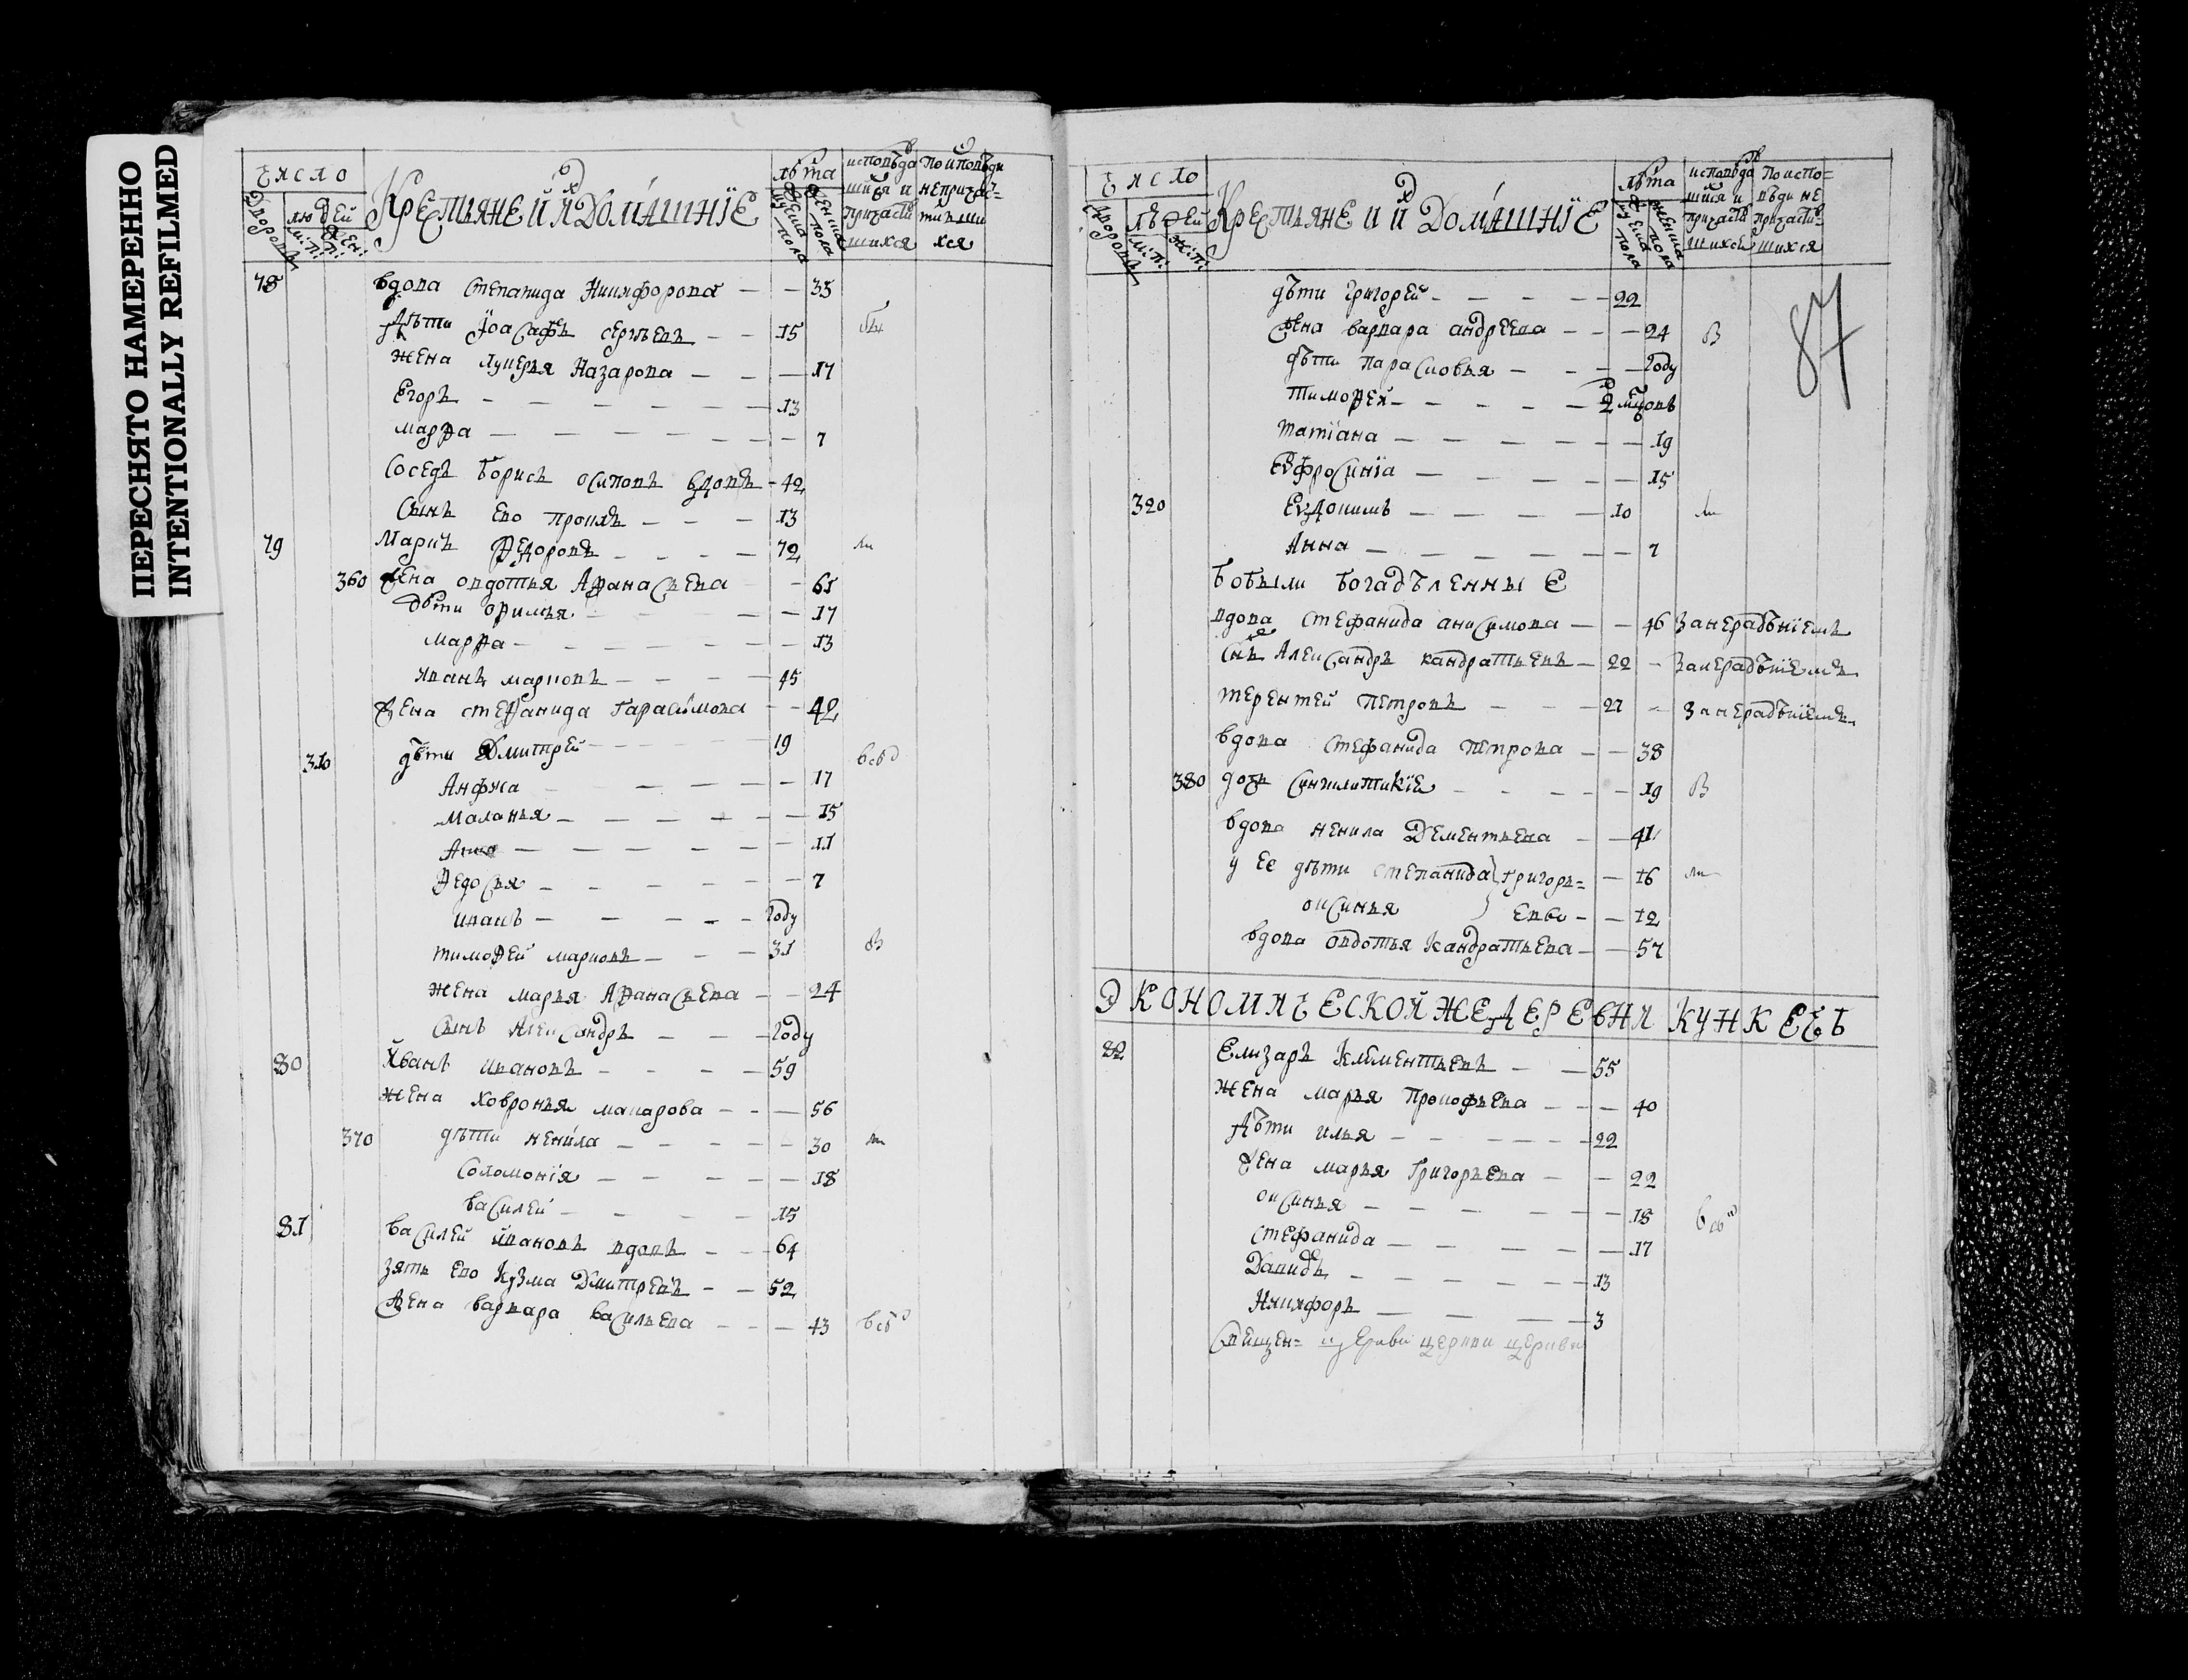 ПЕРЕСНЯТО НАМЕРЕННО
INTENTIONALLY REFILMED
число
Дворовъ
людей
лѣта
Крестьяне и ихъ Домашнїе
исповѣда
шихся и
причасти
шихся
по исповѣди
непричас-
тивши
хся
78 вдова степанида Никифорова — — 35
дѣти Іоасафъ сергѣевъ — — 15
жена лукерья Назарова — — — 17
Егоръ — — — — — — — 13
марфа — — — — — — — — 7
соседъ борисъ осиповъ вдовъ - 42
сынъ ево проклъ — — — 13
79 Маркъ Федоровъ — — — — 72
360 жена овдотья Афанасьева — — 61
дѣти офимья — — — 17
марфа — — — — — — — — 13
иванъ марковъ — — — — 45
жена стефанида Гарасимова — — 42
310 дѣти Дмитрей — — — — 19
Анфиса — — — — — 17
Маланья — — — — — — — 15
Анна — — — — — — — 11
Федосья — — — — — — 7
иванъ — — — — — году
тимофей марковъ — — — 31
жена марья Афанасьева — — 24
сынъ Александръ — — — году
80 Иванъ ивановъ — — — — — 59
жена ховронья макарова — — — 56
370 дѣти ненила — — — — — — 30
соломонія — — — — — 18
василей — — — — — 15
81 василей ивановъ вдовъ — — — 64
зять ево кузма Дмитревъ — — 52
жена варвара васильева — — — 43
число
Дворовъ
людей
м: п:
ж: п:
Крестьяне и ихъ Домашнїе
лѣта
исповѣда
шихся и
причасти
шихся
по испо=
вѣди не
причасти-
шихся
87
дѣти григорей — — — — — 22
жена варвара андреева — — — 24 в
дѣти парасковья — — — — году
тимофей — — — — — 2 мцовъ
татїана — — — — — — — 19
Евфросинїа — — — — — — 15
320 Евдокимъ — — — — — 10
Анна — — — — — — — 7
бобыли богадѣленныЕ
вдова стефанида анисимова — — 46 занерадѣнїемъ
снъ Александръ кандратьевъ — 22 — занерадѣнїемъ
терентей петровъ — — — 27 — занерадѣнїемъ
вдова стефанида петрова — — 38
380 дочь синклитикїя — — — — — 19 в
вдова ненила Дементьева — — 41
у ее дѣти степанида } григорь= — 16
оксинья } евы — — 12
вдова овдотья кандратьева — — 57
ЭКОНОМИЧЕСКОЙ ЖЕ ДЕРЕВНИ КУНКЕЕВ
82 Елизаръ климентьевъ — — 55
жена марья прокофьева — — — 40
дѣти илья — — — — — — 22
жена марья Григорьева — — — 22
оксинья — — — — — — — 18
стефанида — — — — — 17
Давидъ — — — — — — — 13
Никифоръ — — — — 3
Священ= церкви церкви церкви